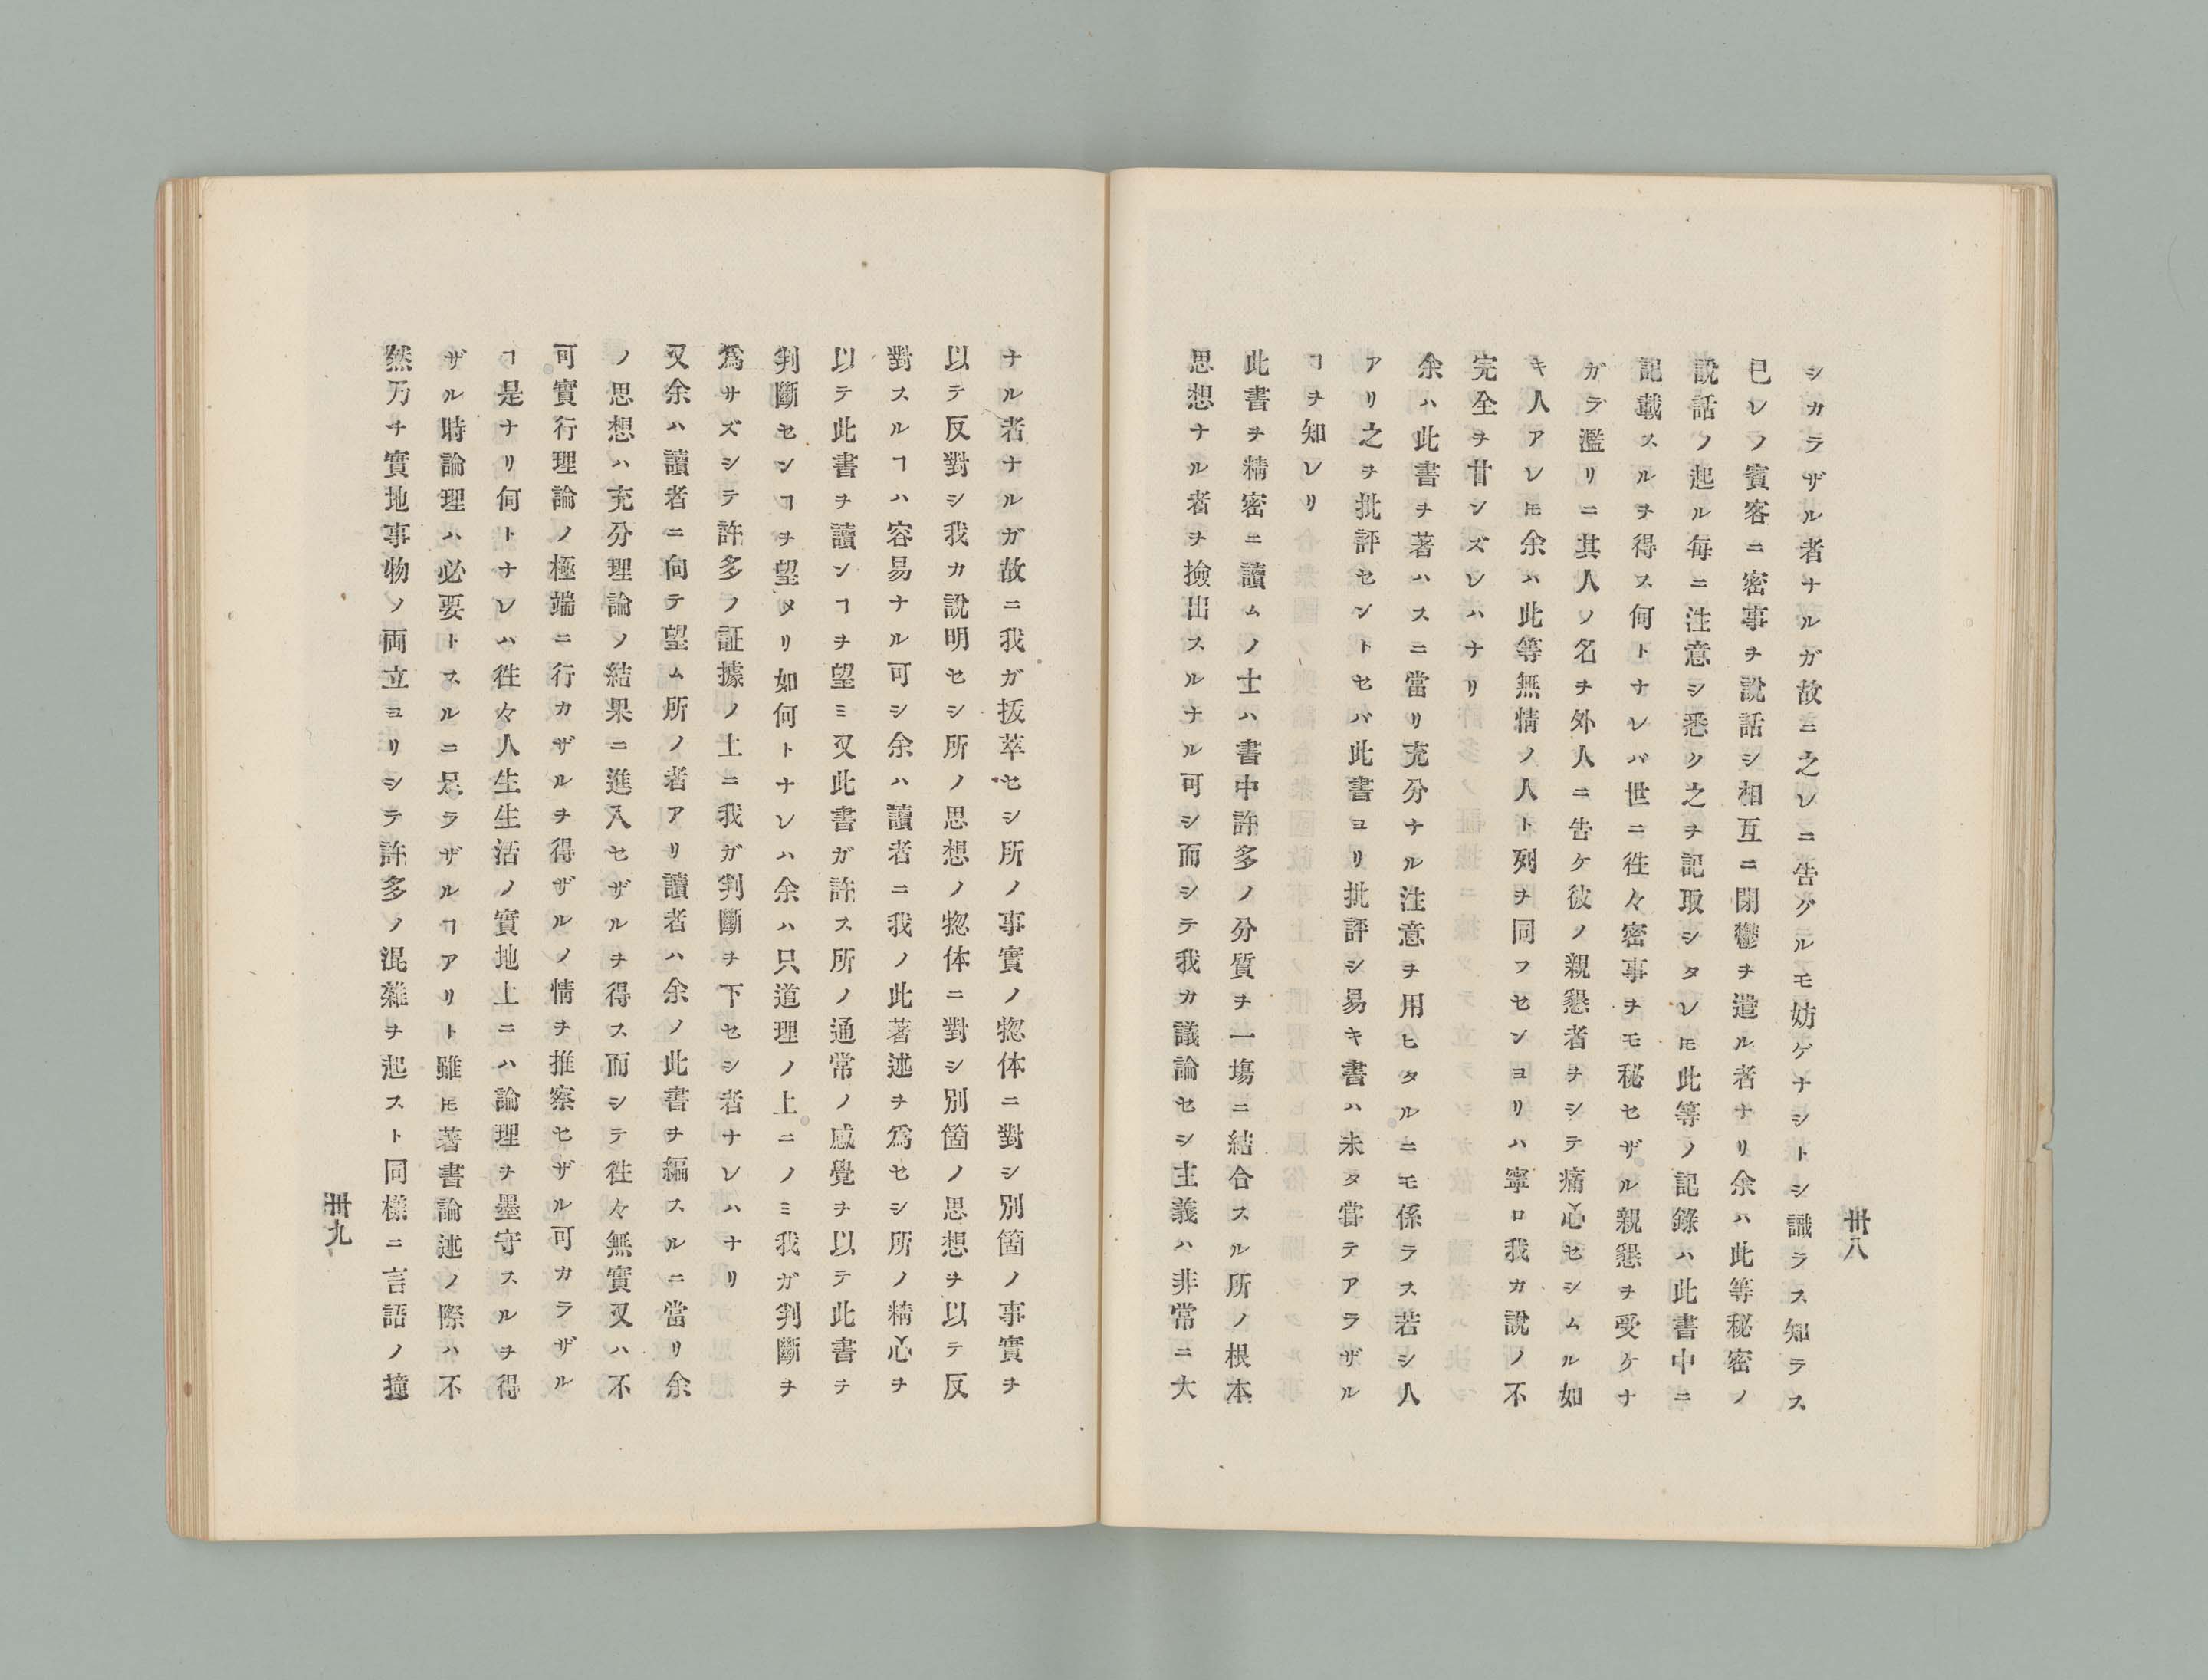 卅八
シカラザル者ナルガ故ニ之レニ告クルモ妨ゲナシトシ識ラス知ラス
已レノ賓客ニ密事ヲ說話シ相互ニ閉鬱ヲ遣ル者ナリ余ハ此等秘密ノ
說話ノ起ル每ニ注意シ悉ク之ヲ記取シタレ𪜈此等ノ記錄ハ此書中ニ
記載スルヲ得ス何トナレバ世ニ徃々密事ヲモ秘セザル親懇ヲ受ケナ
ガラ濫リニ其人ノ名ヲ外人ニ告ケ彼ノ親懇者ヲシテ痛心セシムル如
キ人アレ𪜈余ハ此等無情ノ人ト列ヲ同フセンヨリハ寧ロ我カ說ノ不
完全ヲ甘ンズレハナリ
余ハ此書ヲ著ハスニ當リ充分ナル注意ヲ用ヒタルニモ係ラス若シ人
アリ之ヲ批評セントセバ此書ヨリ批評シ易キ書ハ未タ甞テアラザル
ヿヲ知レリ
此書ヲ精密ニ讀ムノ士ハ書中許多ノ分質ヲ一塲ニ結合スル所ノ根本
思想ナル者ヲ撿出スルナル可シ而シテ我カ議論セシ主義ハ非常ニ大
ナル者ナルガ故ニ我ガ扳萃セシ所ノ事實ノ惣体ニ對シ別箇ノ事實ヲ
以テ反對シ我カ說明セシ所ノ思想ノ惣体ニ對シ別箇ノ思想ヲ以テ反
對スルヿハ容易ナル可シ余ハ讀者ニ我ノ此著述ヲ爲セシ所ノ精心ヲ
以テ此書ヲ讀ンヿヲ望ミ又此書ガ許ス所ノ通常ノ感覺ヲ以テ此書ヲ
判斷センヿヲ望タリ如何トナレハ余ハ只道理ノ上ニノミ我ガ判斷ヲ
爲サズシテ許多ノ証據ノ上ニ我ガ判斷ヲ下セシ者ナレハナリ
又余ハ讀者ニ向テ望ム所ノ者アリ讀者ハ余ノ此書ヲ編スルニ當リ余
ノ思想ハ充分理論ノ結果ニ進入セザルヲ得ス而シテ徃々無實又ハ不
可實行理論ノ極端ニ行カザルヲ得ザルノ情ヲ推察セザル可カラザル
ヿ是ナリ何トナレハ徃々人生生活ノ實地上ニハ論理ヲ墨守スルヲ得
ザル時論理ハ必要トスルニ足ラザルヿアリト雖𪜈著書論述ノ際ハ不
然乃チ實地事物ノ両立ヨリシテ許多ノ混雜ヲ起スト同樣ニ言語ノ撞
卅九